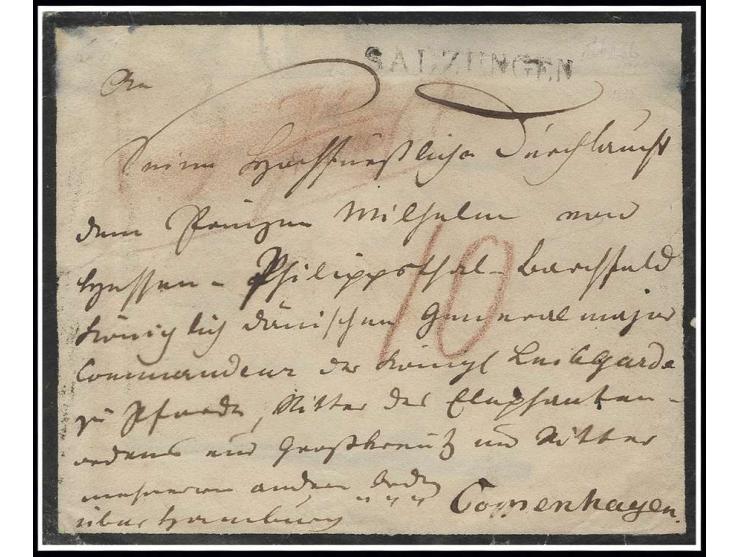 SALZUNGEN
An
Seine Hochfürstliche Durchlaucht
dem Prinzen Wilhelm von
Hessen - Philippsthal - Barchfeld
Königlich dänischen General major
Commandeur der Königl Leibgarde
zu Pferde, Ritter des Elephanten-
ordens und Großkreutz und Ritter
mehrerer anderer Orden
Coppenhagen.
über Hamburg
10